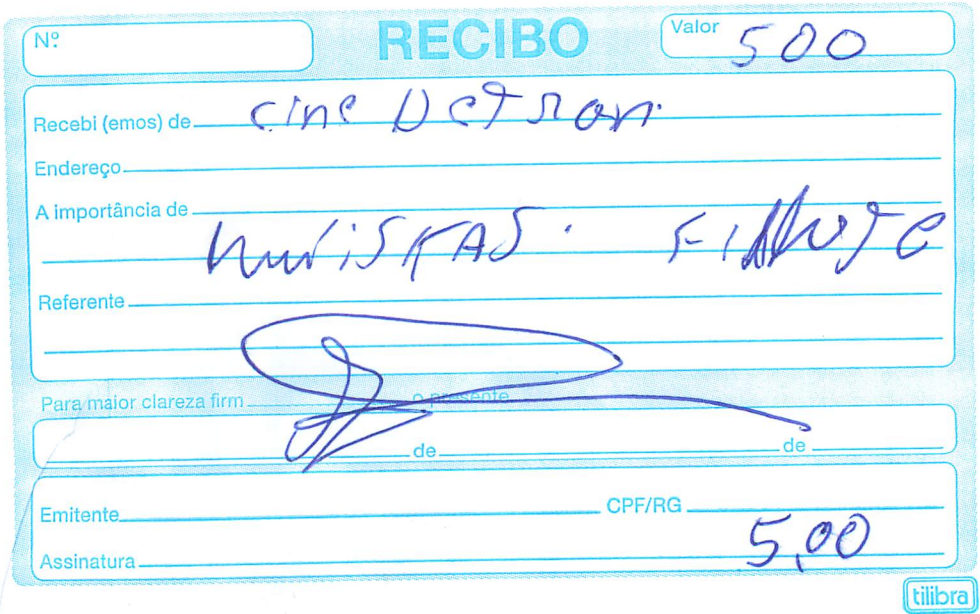 Nº RECIBO Valor 500
Recebi (emos) de cine
Endereço
A importância de
Referente
Para maior clareza firm o presente
de de
Emitente CPF/RG
5,00
Assinatura
tilibra